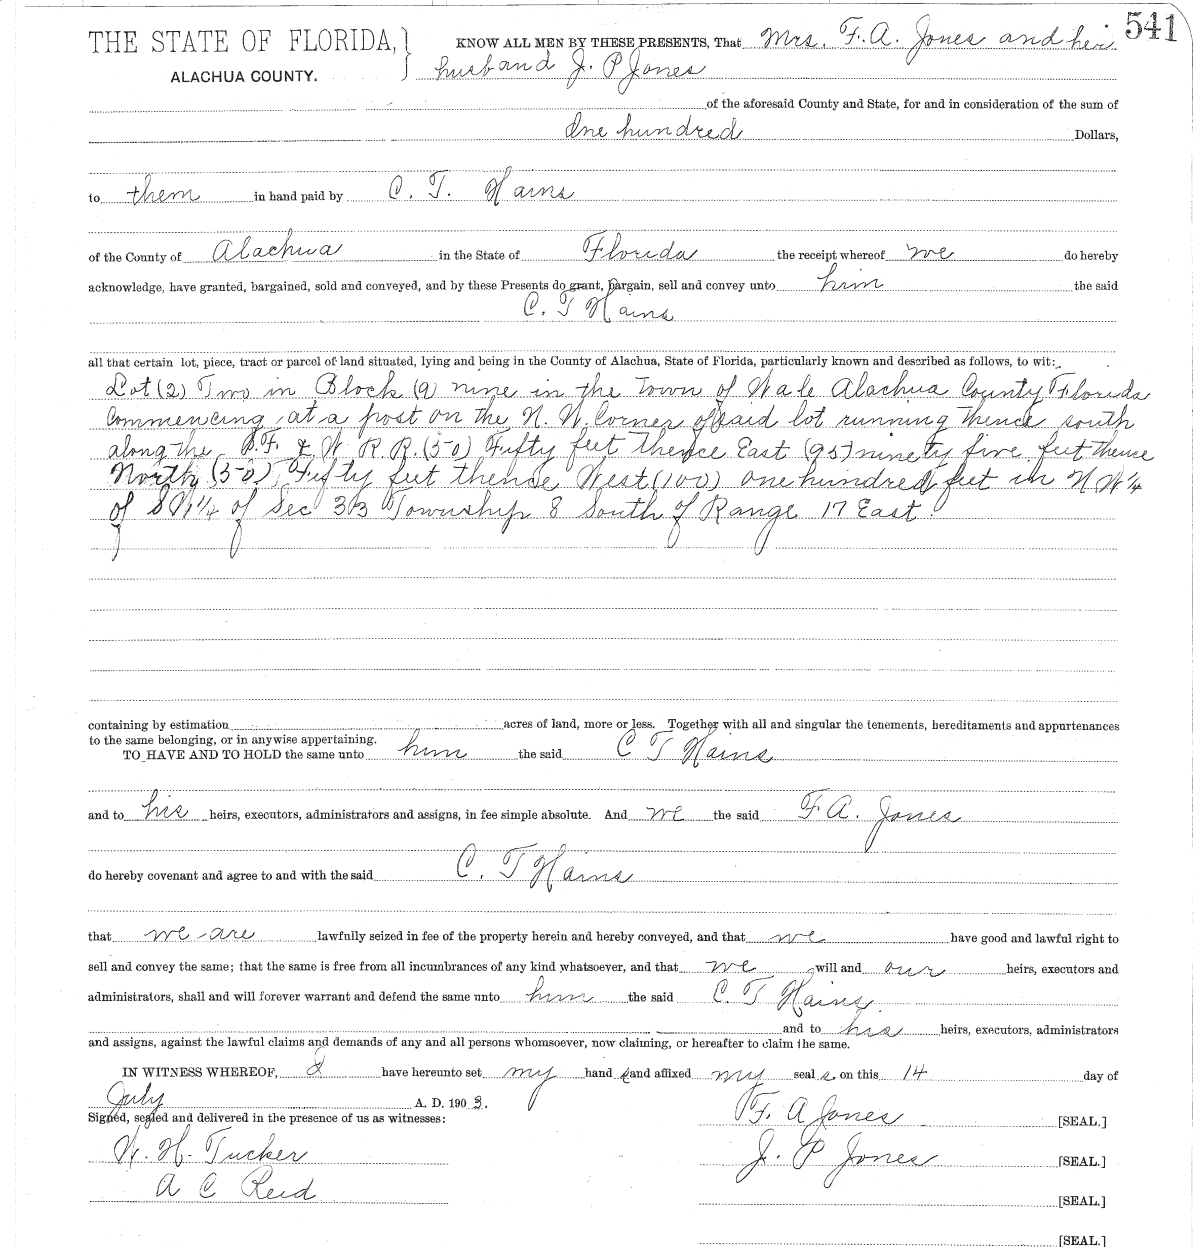 541
THE STATE OF FLORIDA,
ALACHUA COUNTY.
KNOW ALL MEN BY THESE PRESENTS, That Mrs. F. A. Jones and her
husband J. P Jones
of the aforesaid County and State, for and in consideration of the sum of
One hundred Dollars,
to them in hand paid by C. T. Hains
of the County of Alachua in the State of Florida the receipt whereof we do hereby
acknowledge, have granted, bargained, sold and conveyed, and by these Presents do grant, bargain, sell and convey unto him the said
C. T Hains
all that certain lot, piece, tract or parcel of land situated, lying and being in the County of Alachua, State of Florida, particularly known and described as follows, to wit:
Lot (2) Two in Block (9) nine in the town of Alachua County Florida
Commencing at a post on the N. W. Corner of said lot running thence south
along the & W R. R. (50) Fifty feet thence East (95) ninety five feet thence
North (50) Fifty feet thence West (100) one hundred feet in N W ¼
of of Sec 33 Township 8 South of Range 17 East.
containing by estimation acres of land, more or less. Together with all and singular the tenements, hereditaments and appurtenances
to the same belonging, or in anywise appertaining.
TO HAVE AND TO HOLD the same unto him the said C T Hains
and to his heirs, executors, administrators and assigns, in fee simple absolute. And we the said F. A. Jones
do hereby covenant and agree to and with the said C. T Hains
that we are lawfully seized in fee of the property herein and hereby conveyed, and that we have good and lawful right to
sell and convey the same; that the same is free from all incumbrances of any kind whatsoever, and that we will and our heirs, executors and
administrators, shall and will forever warrant and defend the same unto him the said C. T Hains
and to his heirs, executors, administrators
and assigns, against the lawful claims and demands of any and all persons whomsoever, now claiming, or hereafter to claim the same.
IN WITNESS WHEREOF, I have hereunto set my hand and affixed my seal s. on this 14 day of
July A. D. 1903.
Signed, sealed and delivered in the presence of us as witnesses:
F. A Jones [SEAL.]
W. H. Tucker
J. P Jones [SEAL.]
A C Reid
[SEAL.]
[SEAL.]